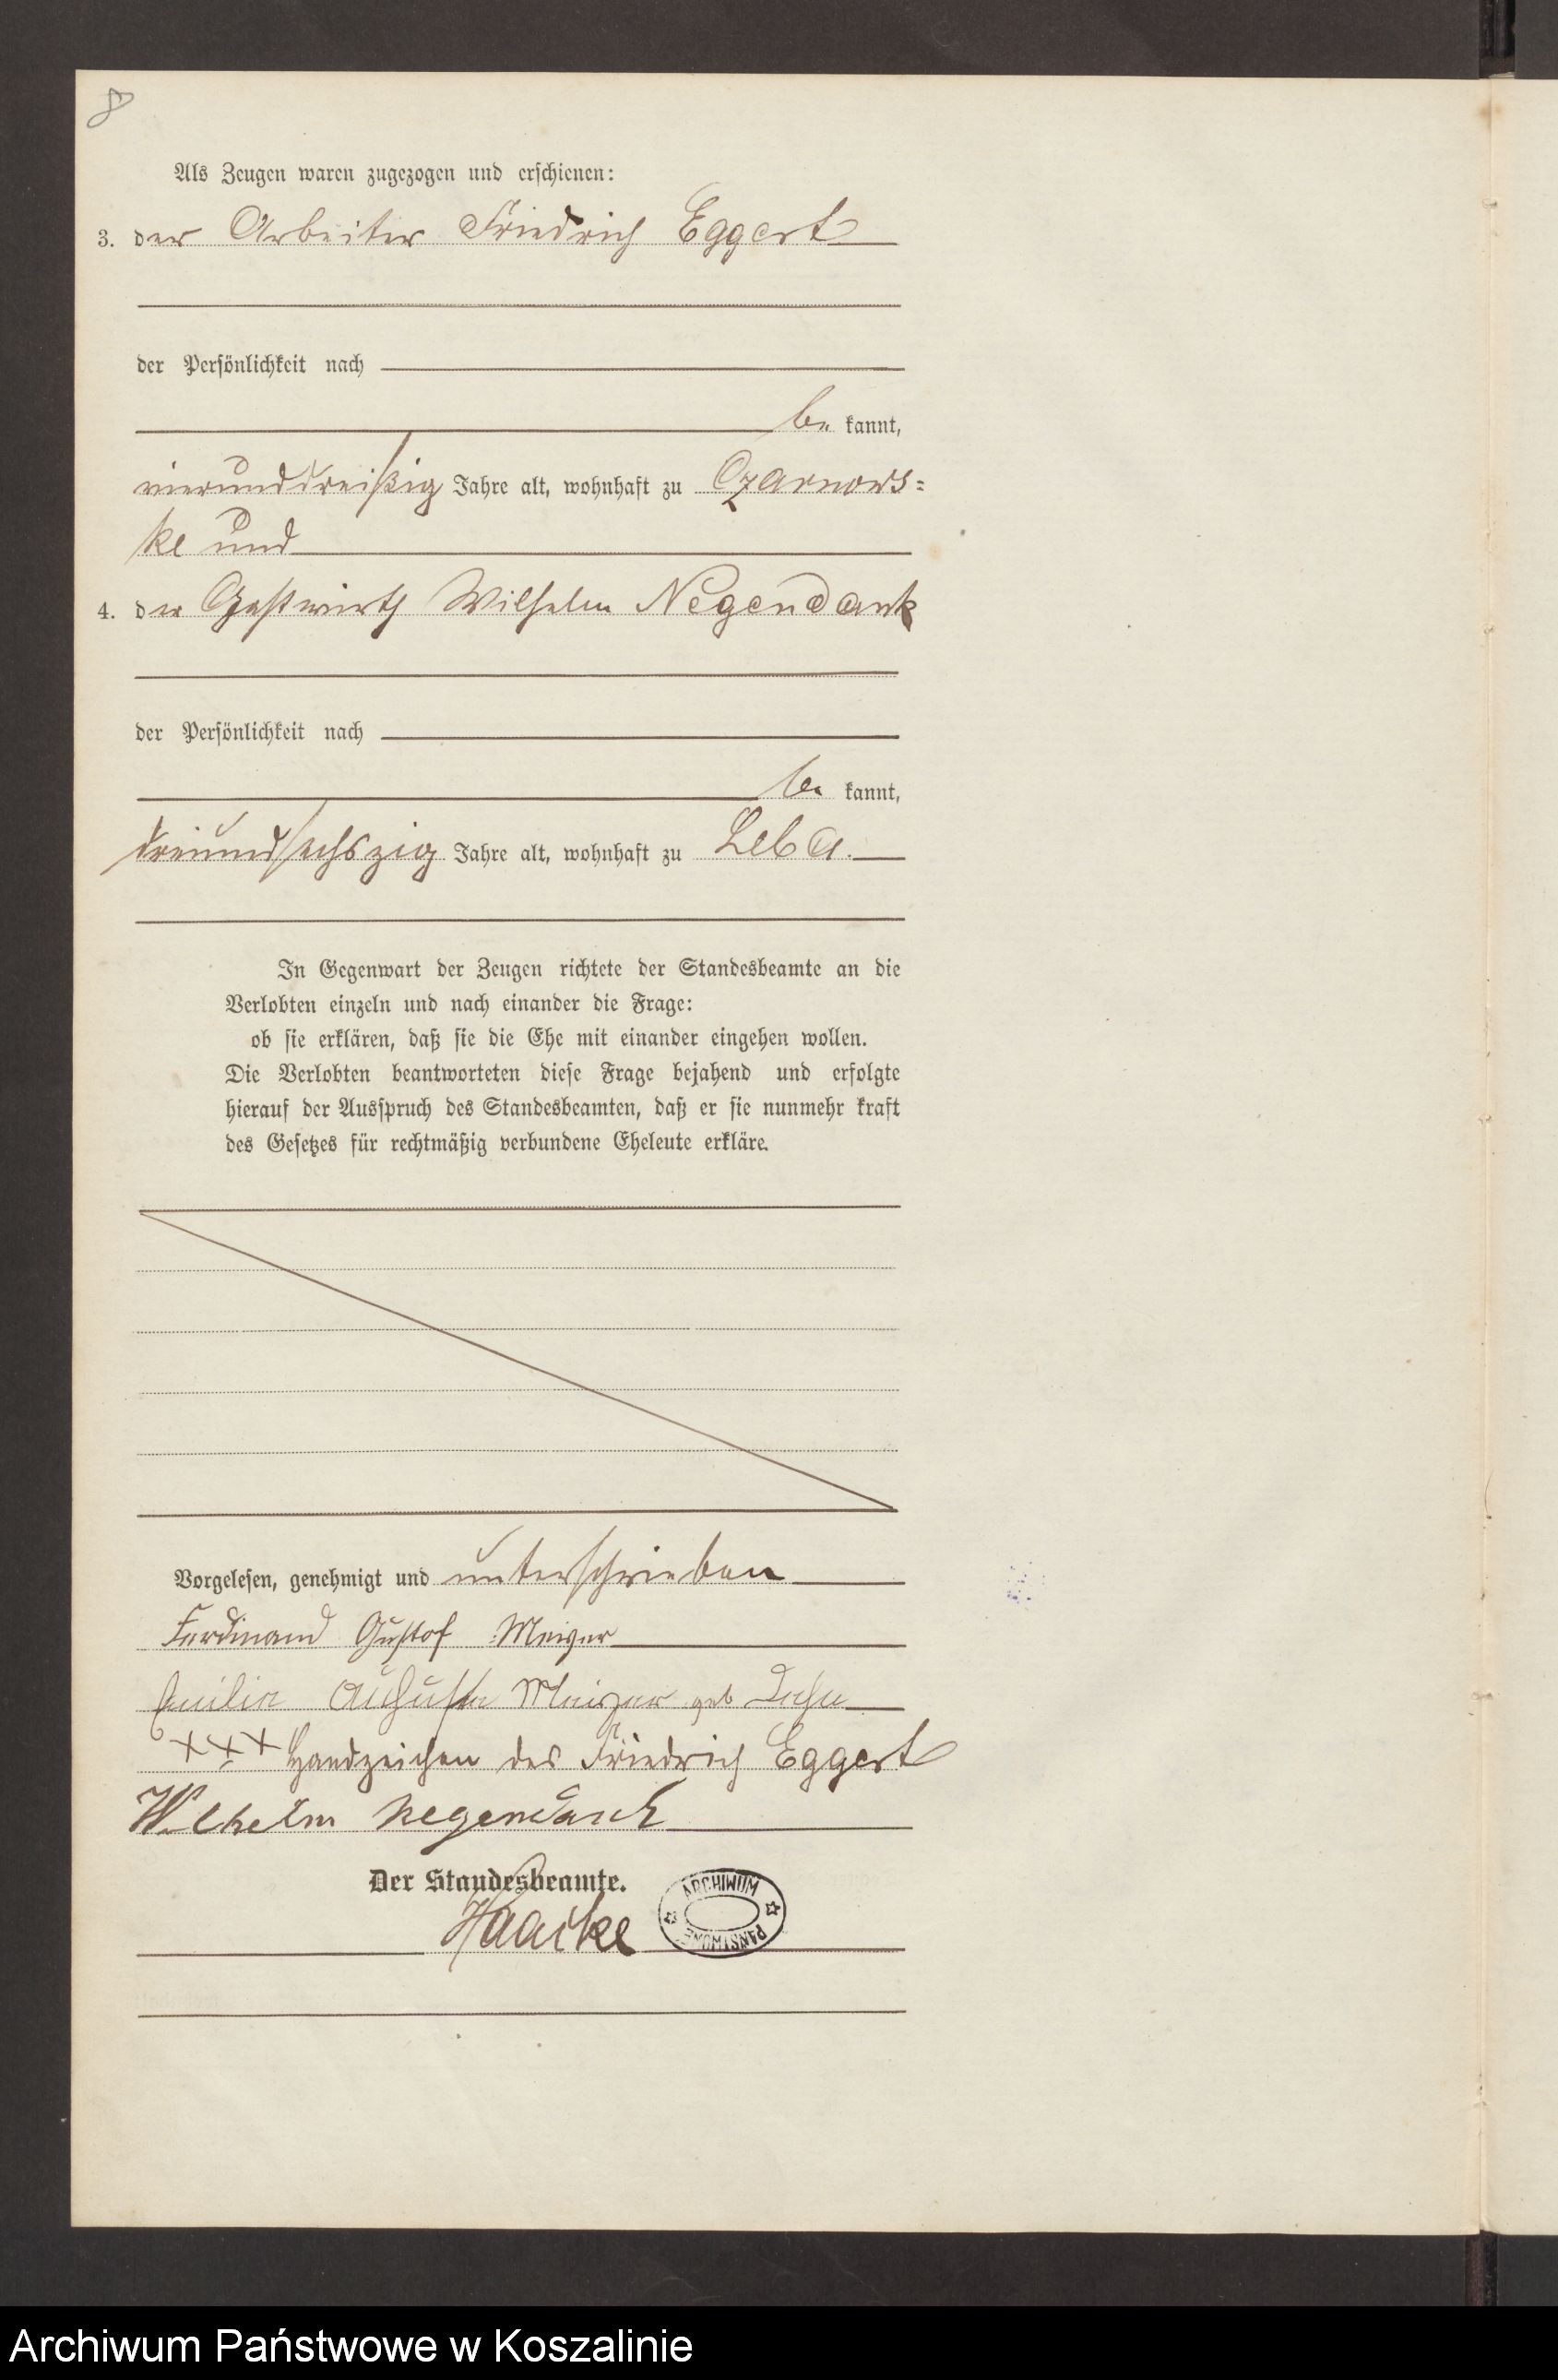 8
Als Zeugen waren zugezogen und erschienen:
3. der Arbeiter Friedrich Eggert
der Persönlichkeit nach
be kannt,
vierunddreißig Jahre alt, wohnhaft zu Czarnows=
ke und
4. der Gastwirth Wilhelm Negendank
der Persönlichkeit nach
be kannt,
dreiundsechszig Jahre alt, wohnhaft zu Leba.
In Gegenwart der Zeugen richtete der Standesbeamte an die
Verlobten einzeln und nach einander die Frage:
ob sie erklären, daß sie die Ehe mit einander eingehen wollen.
Die Verlobten beantworteten diese Frage bejahend und erfolgte
hierauf der Ausspruch des Standesbeamten, daß er sie nunmehr kraft
des Gesetzes für rechtmäßig verbundene Eheleute erkläre.
Vorgelesen, genehmigt und unterschrieben
Ferdinand Gustof
Auguste geb
+++ Handzeichen des Friedrich Eggert
Wilhelm Negendank
Der Standesbeamte.
Haacke
ARCHIWUM PAŃSTWOWE
Archiwum Państwowe w Koszalinie